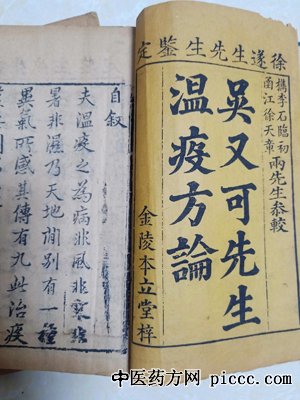 徐遂生先生鑒定
檇李石臨初
函江徐天章
兩先生叅較
吳又可先生
溫疫方論
金陵本立堂梓
自叙
夫溫疫之為病非風非寒非
暑非濕乃天地間別有一種
異氣所感其傳有九此治疫
中医药方网 piccc.com